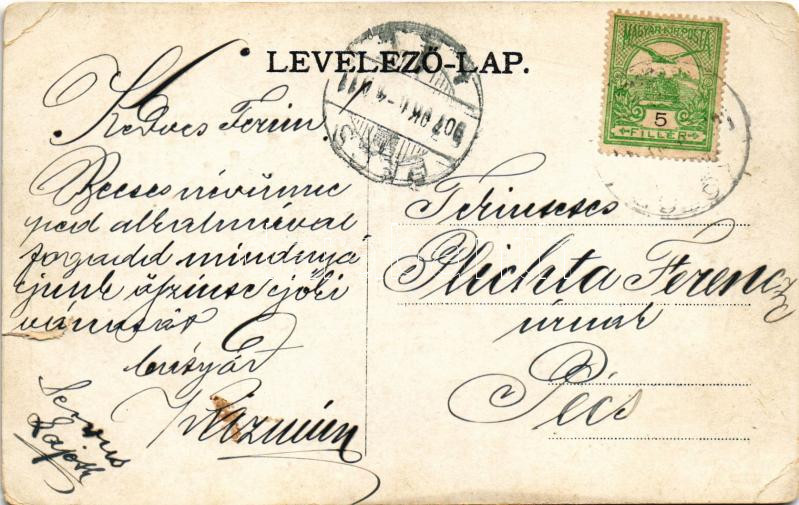 LEVELEZŐ-LAP.
MAGYAR KIR. POSTA
5
FILLÉR
PÉCS
907 OKT
Kedves Ferim
Becses névünne
ped alkalmával
fogadd mindnyá
junk őszinte jóki
vánatát
bátyád
Kázmér
Servus
Lajos
Tekintetes
Plichta Ferencz
úrnak
Pécs